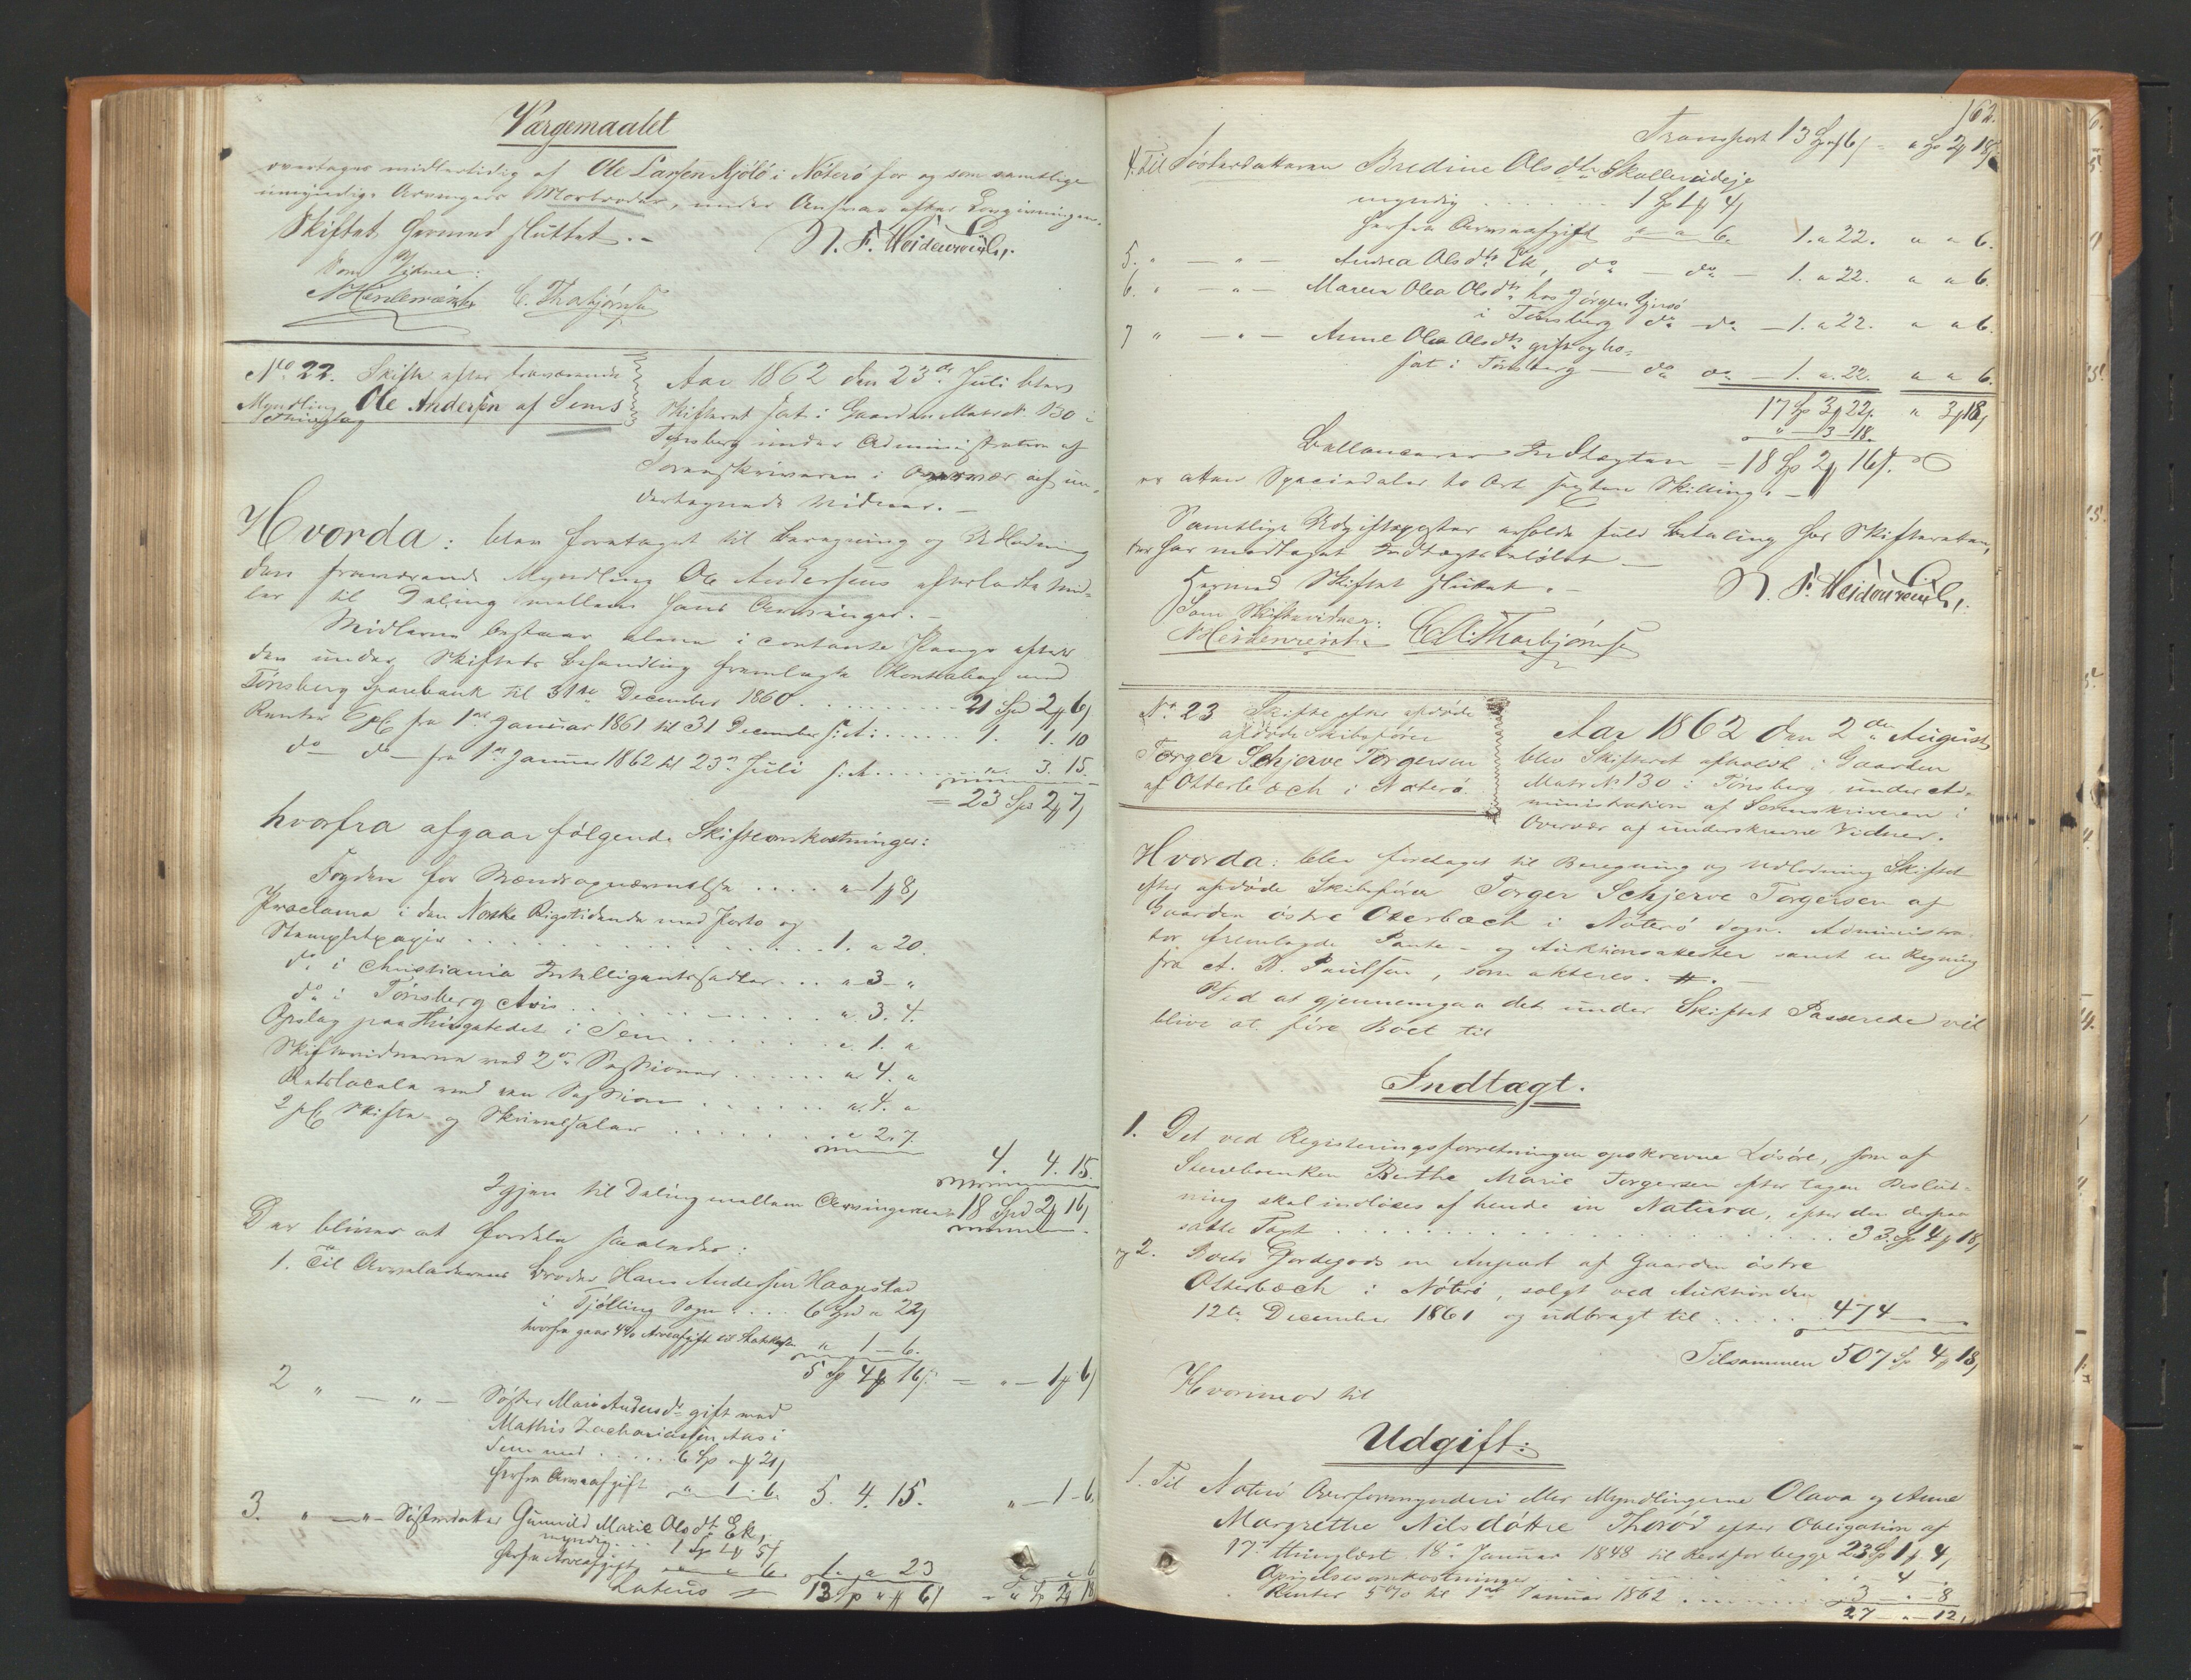 Værgemaalet
overtages midlertidig af Ole Larsen Mjölö i Nöterö for og som samtlige
umyndige Arvingers Morbroder, under Ansvar efter Lovgivningen.
Skiftet hermed sluttet. –
N. F. Heidenreich.
Som Vidner:
NHeidenreich C. Thorbjörnsen
No 22. Skifte efter fraværende
Myndling Ole Andersen af Sems
Thinglag
Aar 1862 den 23de Juli blev
Skifteret sat i Gaarden Matr. N. 130 i
Tönsberg under Administration af
Sorenskriveren i Overvær af un-
dertegnede Vidner. –
Hvorda: blev foretaget til Beregning og Udlodning
den fraværende Myndling Ole Andersens efterladte Mid-
ler til Deling mellem hans Arvinger. –
Midlerne bestaar alene i contante Penge efter
den under Skiftets Behandling fremlagte Kontrabog med
Tönsberg Sparebank til 31te December 1860 . . . . 21 Spd 2 # 6 s
Renter 6 pC. fra 1ste Januar 1861 til 31 December s. A. . . . . 1. 1. 10
do do – fra 1ste Januar 1862 til 23de Juli s. A. . . . . „ 3. 15.
= 23 Spd 2 # 7 s
hvorfra afgaar fölgende Skifteomkostninger:
Fogden for Mændsopnævnelse . . . . „ 1 # 8 s
Proclama i den Norske Rigstidende med Porto og
Stempletpapir . . . . 1. „ 20.
do i Christiania Intelligentssedler . . . „ 3 – „
do i Tönsberg Avis . . . . „ 3. 4.
Opslag paa Thingstedet i Sem . . . . „ 1. „
Skiftevidnerne ved 2de Sessioner . . . . „ 4. „
Retslocale ved en Session . . . . „ 4. „
2 pC. Skifte- og Skriversalær . . . . „ 2. 7.
4. 4. 15
Igjen til Deling mellem Arvingerne 18 Spd 2 # 16 s
Der bliver at fordele saaledes:
1. Til Arveladerens Broder Hans Andersen Haagestad
i Tjölling Sogn . . . . 6 Spd „ 22 s
hvorfra gaar 4% Arveafgift til Statskassen „ 1 – 6.
5 Sp 4 # 16 s. = „ – 1 # 6 s
2 „ — „ — Söster Marie Andersdr gift med
Mathis Zachariassen Aas i
Sem med . . . . . 6 Sp „ # 21 s
herfra Arveafgift „ 1 . 6. 5. 4. 15. „ – 1 – 6.
3. „ — „ — Sösterdatter Gunnild Marie Olsdtr Ek,
myndig . . . 1 Sp 1 # 5 s
herfra Arveafgift „ „ 6. 1. „ 23 „ „ 6
Latus = 13 Sp „ # 6 s = „ Sp 2 # 18
162.
Transport 13 Sp „ # 6 s = „ Sp 2 # 18 s
4. Til Sösterdatteren Bredine Olsdtr Skalleredeje
myndig . . . . . . . 1 Sp 1 # 4 s
herfra Arveafgift „ „ 6. 1. „ 22. „ „ 6.
5. „ — „ — Andrea Olsdtr Ek, do – do – 1. „ 22. „ „ 6.
6. „ — „ — Maren Olea Olsdtr hos Jörgen
i Tönsberg do – do – 1. „ 22. „ „ 6.
7 „ — „ — Anne Olea Olsdtr gift og bo-
sat i Tönsberg — do do – 1. „ 22. „ „ 6.
17 Sp 3 # 22 s. „ 3 # 18 s
„ – 3 – 18.
Ballancerer Indtægten = 18 Sp 2 # 16 s.
er atten Speciedaler to Ort sexten Skilling. –
Samtlige Udgiftsposter erholde fuld Betaling hos Skifteretten,
der har modtaget Indtægtsbelöbet –
Hermed Skiftet sluttet. –
N. F. Heidenreich.
Som Skiftevidner:
NHeidenreich Thorbjörnsen
No 23 Skifte efter afdöde
afdöde Skibsförer
Torger Schjerve Torgersen
af Otterbech i Nöterö.
Aar 1862 den 2den August
blev Skifteret afholdt i Gaarden
Matr. N. 130 i Tönsberg under Ad-
ministration af Sorenskriveren i
Overvær af underskrevne Vidner.
Hvorda: blev foretaget til Beregning og Udlodning Skiftet
efter afdöde Skibsförer Torger Schjerve Torgersen af
Gaarden östre Oterbech i Nöterö Sogn. Administra-
tor fremlagde Pante- og Auktionsattester samt en Regning
fra A. B. Paulsen, som akteres. #. –
Ved at gjennemgaa det under Skiftet Passerede vil
blive at före Boet til
Indtægt.
1. Det ved Registeringsforretningen opskrevne Lösöre, som af
Stervboenken Berthe Marie Torgersen efter tagen Beslut-
ning skal indlöses af hende in Natura, efter den derpaa
satte Taxt . . . . . . . . 33. Sp 4 # 18 s
og 2. Boets Jordegods en Anpart af Gaarden östre
Otterbech i Nöterö, solgt ved Auktion den
12te December 1861 og udbragt til . . . . . . 474 – „ –
Tilsammen 507 Sp 4 # 18 s
Hvorimod til
Udgift:
1. Til Nöterö Overformynderi eller Myndlingerne Olava og Anne
Margrethe Nilsdöttre Thoröd efter Obligation af
17. thinglæst 18. Januar 1848 til Rest for begge 23 Sp 1 # 4 s
Opsigelsesomkostninger . . . . . „ 4 „
Renter 5% til 1ste Januar 1862 . . . . . 3 – „ – 8
27 – „ – 12 s